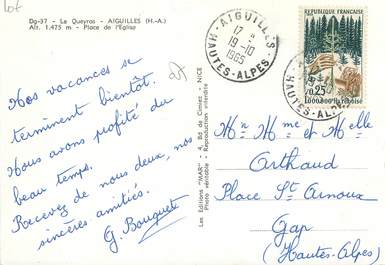 Dg-37 - Le Queyras - AIGUILLES (H.-A.)
Alt. 1.475 m - Place de l'Eglise
Nos vacances se
terminent bientôt.
Nous avons profité du
beau temps.
Recevez de nous deux, nos
sincères amitiés.
G. Bouguet
Les Editions "MAR" - 4, Bd de Cimiez - NICE
Photo véritable - Reproduction interdite
AIGUILLES
17
19-10
1965
HAUTES-ALPES
REPUBLIQUE FRANÇAISE
0,25
1.000.000e HA REBOISÉ
HAUTES-AL
Mr Mme et Melle
Arthaud
Place St Arnoux
Gap
(Hautes-Alpes)